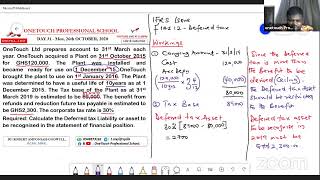 ONETOUCH PROFESSIONAL SCHOOL
DAY 31 - Mon, 26th OCTOBER, 2020
OneTouch Ltd prepares account to 31st March each
year. OneTouch acquired a Plant on 31st October 2015
for GHS120,000. The Plant was installed and
became ready for use on 1 December '15. OneTouch
brought the plant to use on 1st January 2016. The Plant
was determined to have a useful life of 10years as at 1
December 2015. The Tax base of the Plant as at 31st
March 2019 is estimated to be
The benefit from
refunds and reduction future tax payable is estimated to
be GHS2,300. The corporate tax rate is 30%.
Required: Calculate the Deferred Tax Liability or asset to
be recognised in the statement of financial position.
IAS 12 - Deferred tax
Workings
① Carrying Amount
Cost 120,000
(40,000)
80,000
② Tax Base
Deferred tax Asset
= 2700
Since the deferred
tax is more than
the Benefit to be
derived (Ceiling)
the Deferred tax Asset
should be restricted
to its Benefit
Deferred tax Asset
to be recognise in
2019 must be
zoom